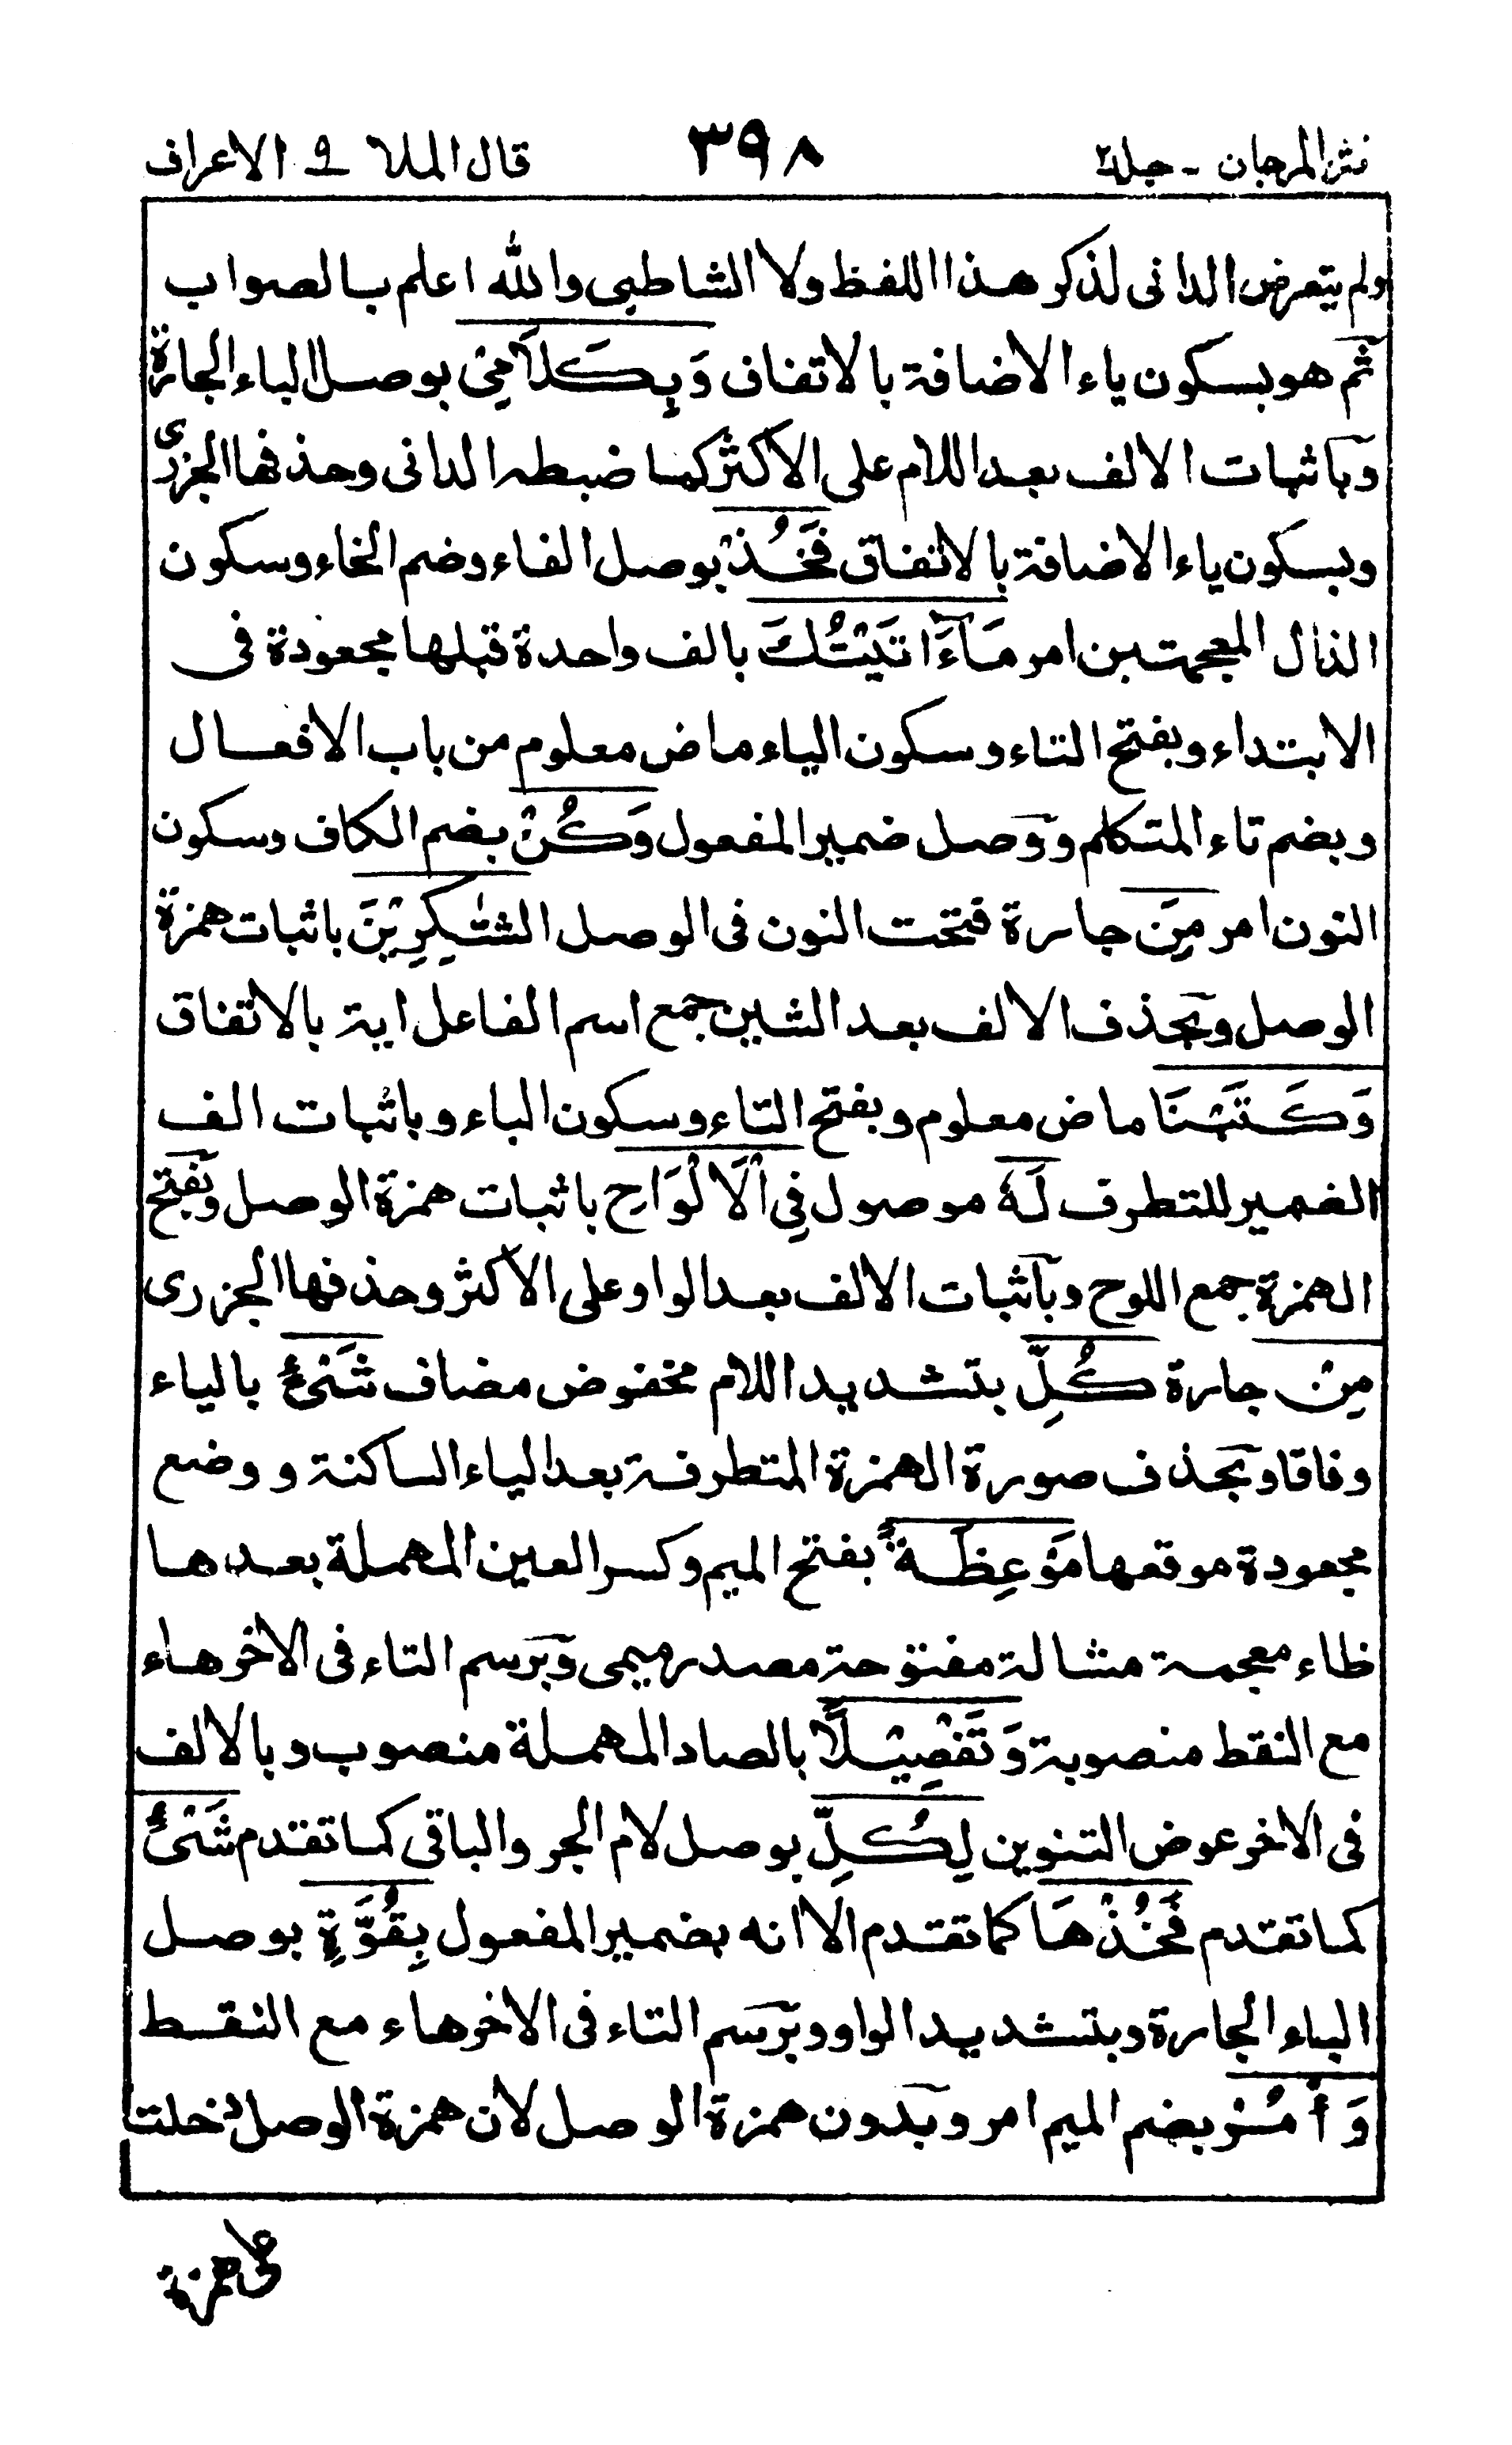 نثر المرجان - جلد٢ ٣٩٨ قال الملا ٩ الاعراف
ولم يتعرض الدانى لذكر هذا اللفظ ولا الشاطبى والله اعلم بالصواب
ثم هو بسكون ياء الاضافة بالاتفاق وَبِكَلَامِىْ بوصل الباء الجارة
وبآثبات الالف بعد اللام على الاكثر كما ضبطه الدانى وحذفها الجزرى
وبسكون ياء الاضافة بالاتفاق فَخُذْ بوصل الفاء وضم الخاء وسكون
الذال المعجمتين امر مَآءَاتَيْتُكَ بالف واحدة قبلها مجعودة فى
الابتداء وبفتح التاء وسكون الياء ماض معلوم من باب الافعال
وبضم تاء المتكلم ووصل ضمير المفعول وَكُنْ بضم الكاف وسكون
النون امر مِنَ جارة فتحت النون فى الوصل الشّٰكِرِيْنَ باثبات همزة
الوصل وبحذف الالف بعد الشين جمع اسم الفاعل اية بالاتفاق
وَكَتَبْنَا ماض معلوم وبفتح التاء وسكون الباء وباثبات الف
الضمير للتطرف لَهٗ موصول فِى الْاَلْوَاحِ باثبات همزة الوصل وبفتح
الهمزة جمع اللوح وبآثبات الالف بعد الواو على الاكثر وحذفها الجزرى
مِنْ جارة كُلِّ بتشديد اللام مخفوض مضاف شَىْءٍ بالياء
وفاقا وبحذف صورة الهمزة المتطرفة بعد الياء الساكنة ووضع
مجعودة موقعها مَوْعِظَةً بفتح الميم وكسر العين المهملة بعدها
ظاء معجمة مشالة مفتوحة مصدر ميمى وبرسم التاء فى الاخر هاء
مع النقط منصوبة وَتَفْصِيْلًا بالصاد المهملة منصوب وبالالف
فى الاخر عوض التنوين لِكُلِّ بوصل لام الجر والباقى كما تقدم شَىْءٍ
كما تقدم فَخُذْهَا كما تقدم الا انه بضمير المفعول بِقُوَّةٍ بوصل
الباء الجارة وبتشديد الواو وبرسم التاء فى الاخر هاء مع النقط
وَأْمُرْ بضم الميم امر وبدون همزة الوصل لان همزة الوصل دخلت
على همزة